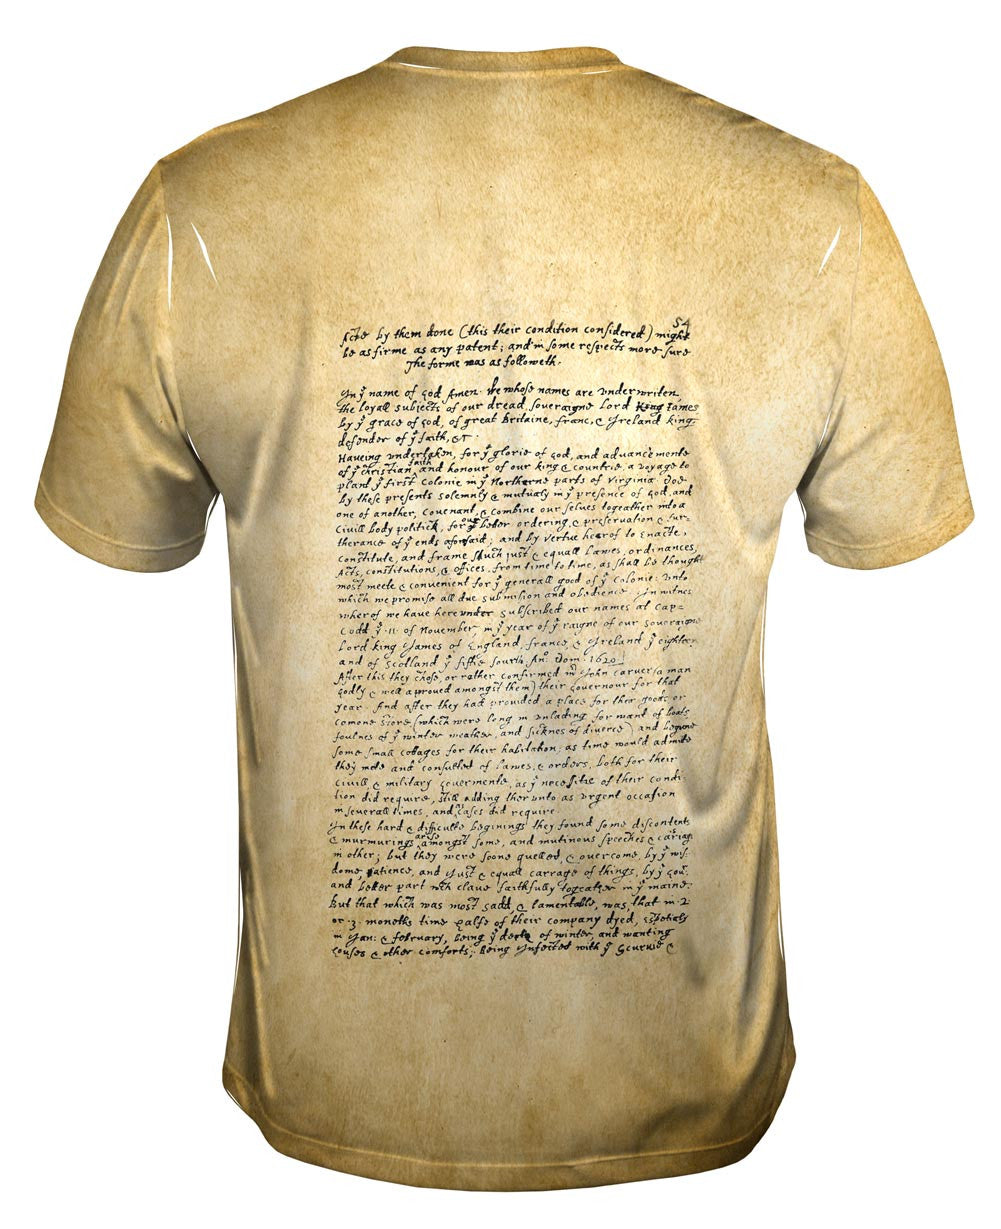 54
Acte by them done (this their condition considered) might
be as firme as any patent; and in some respects more sure
The forme was as followeth.
In yͤ name of god Amen. We whose names are underwriten,
the loyall subjects of our dread soveraigne Lord King James
by yͤ grace of God, of great Britaine, franc, & Ireland king,
defender of yͤ faith, &c
Haveing undertaken, for yͤ glorie of God, and advancemente
of yͤ christian faith and honour of our king & countrie, a voyage to
plant yͤ first colonie in yͤ Northerne parts of Virginia. Doe
by these presents solemnly & mutualy in yͤ presence of God, and
one of another, covenant, & combine our selves togeather into a
Civill body politick, for our better ordering, & preservation & fur-
therance of yͤ ends aforsaid; and by vertue hearof to Enacte,
constitute, and frame such just & equall Lawes, ordinances,
Acts, constitutions, & offices, from time to time, as shall be thought
most meete & convenient for yͤ generall good of yͤ colonie: unto
which we promise all due submission and obedience. In witnes
wherof we have hereunder subscribed our names at Cap=
Codd yͤ .11. of November, in yͤ year of yͤ raigne of our soveraigne
Lord king James of England, france, & Ireland yͤ eighteen
and of Scotland yͤ fiftie fourth. Anº: Dom. 1620.
After this they chose, or rather confirmed mr John carver (a man
godly & well aproved amongst them) their governour for that
year. And after they had provided a place for their goods or
comone store (which were long in unlading for want of boats,
foulnes of yͤ winter weather, and sicknes of diverce) and begune
some small cottages for their habitation; as time would admitte
they mete and consulted of lawes, & orders, both for their
civill, & military govermente, as yͤ necessitie of their condi-
tion did require, still adding therunto as urgent occasion
in severall times, and as cases did require
In these hard & difficulte beginings they found some discontents
& murmurings arise amongst some, and mutinous speeches & cariag
in other; but they were soone quelled, & overcome, by yͤ wis-
dome, patience, and just & equall carrage of things, by yͤ Gov.
and better part wch clave faithfully togeather in yͤ maine.
But that which was most sadd, & lamentable, was, that in .2.
or .3. moneths time halfe of their company dyed, espetialy
in Jan: & february, being yͤ depth of winter, and wanting
houses & other comforts; being Infected with yͤ Scurvie &